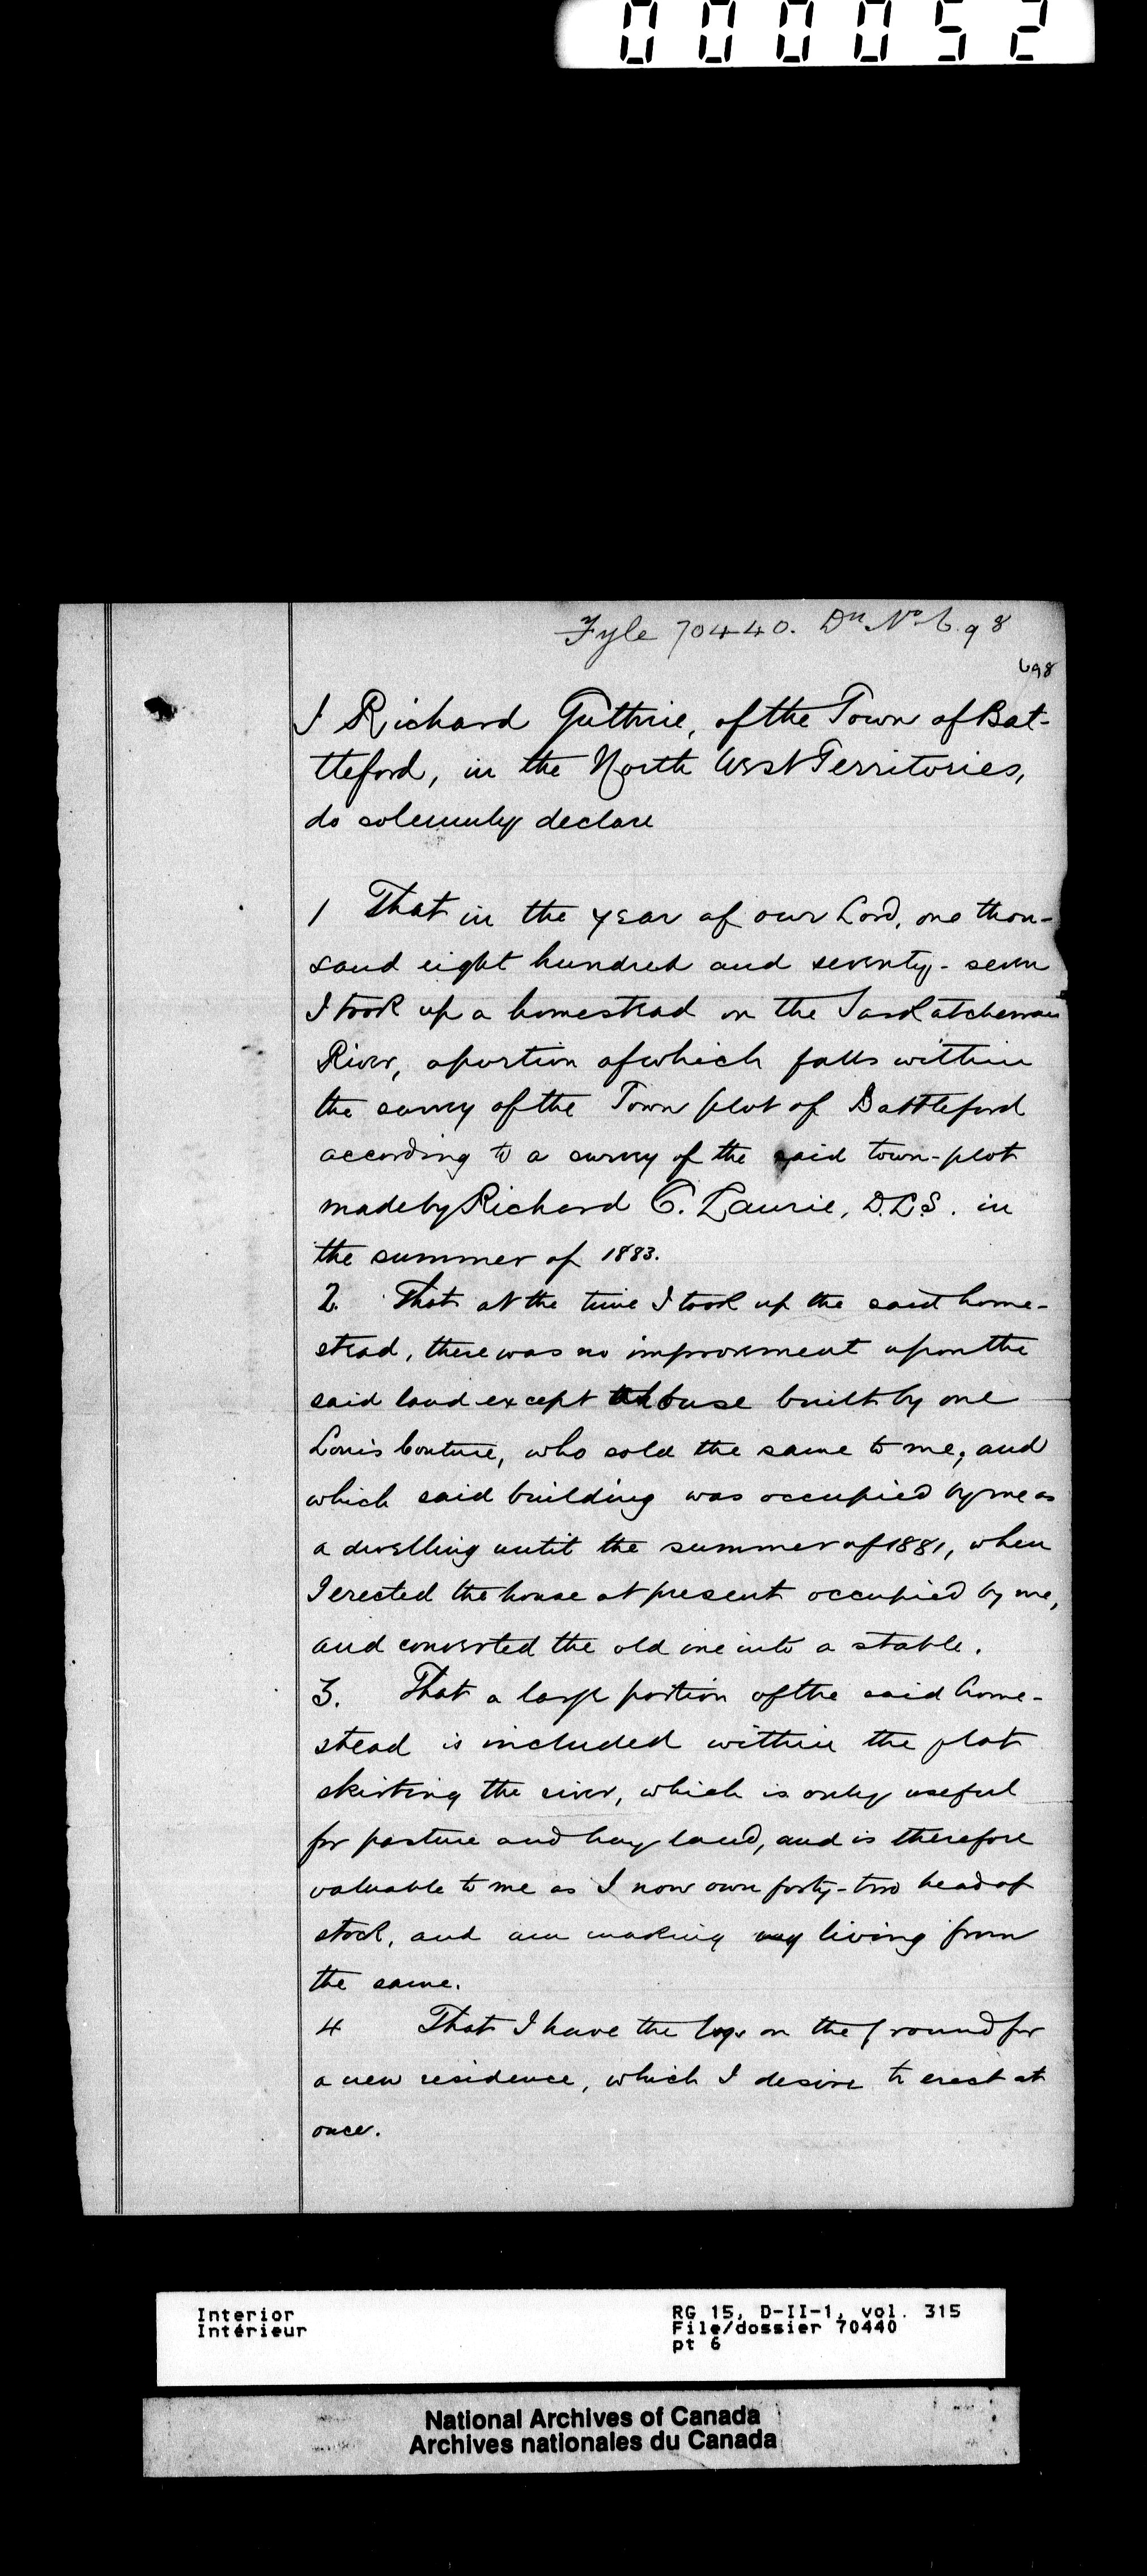 000052
Fyle 70440. Dn No 698
698
I Richard Guthrie, of the Town of Bat-
tleford, in the North West Territories,
do solemnly declare
1 That in the year of our Lord, one thou-
sand eight hundred and seventy-seven
I took up a homestead on the Saskatchewan
River, a portion of which falls within
the survey of the Town plot of Battleford
according to a survey of the said town-plot
made by Richard C. Laurie, D.L.S. in
the summer of 1883.
2. That at the time I took up the said home-
stead, there was no improvement upon the
said land except house built by one
Louis Couture, who sold the same to me, and
which said building was occupied by me as
a dwelling until the summer of 1881, when
I erected the house at present occupied by me,
and converted the old one into a stable.
3. That a large portion of the said home-
stead is included within the flat
skirting the river, which is only useful
for pasture and hay land, and is therefore
valuable to me as I now own forty-two head of
stock, and am making my living from
the same.
4 That I have the logs on the ground for
a new residence, which I desire to erect at
once.
Interior
Intérieur
RG 15, D-II-1, vol. 315
File/dossier 70440
pt 6
National Archives of Canada
Archives nationales du Canada